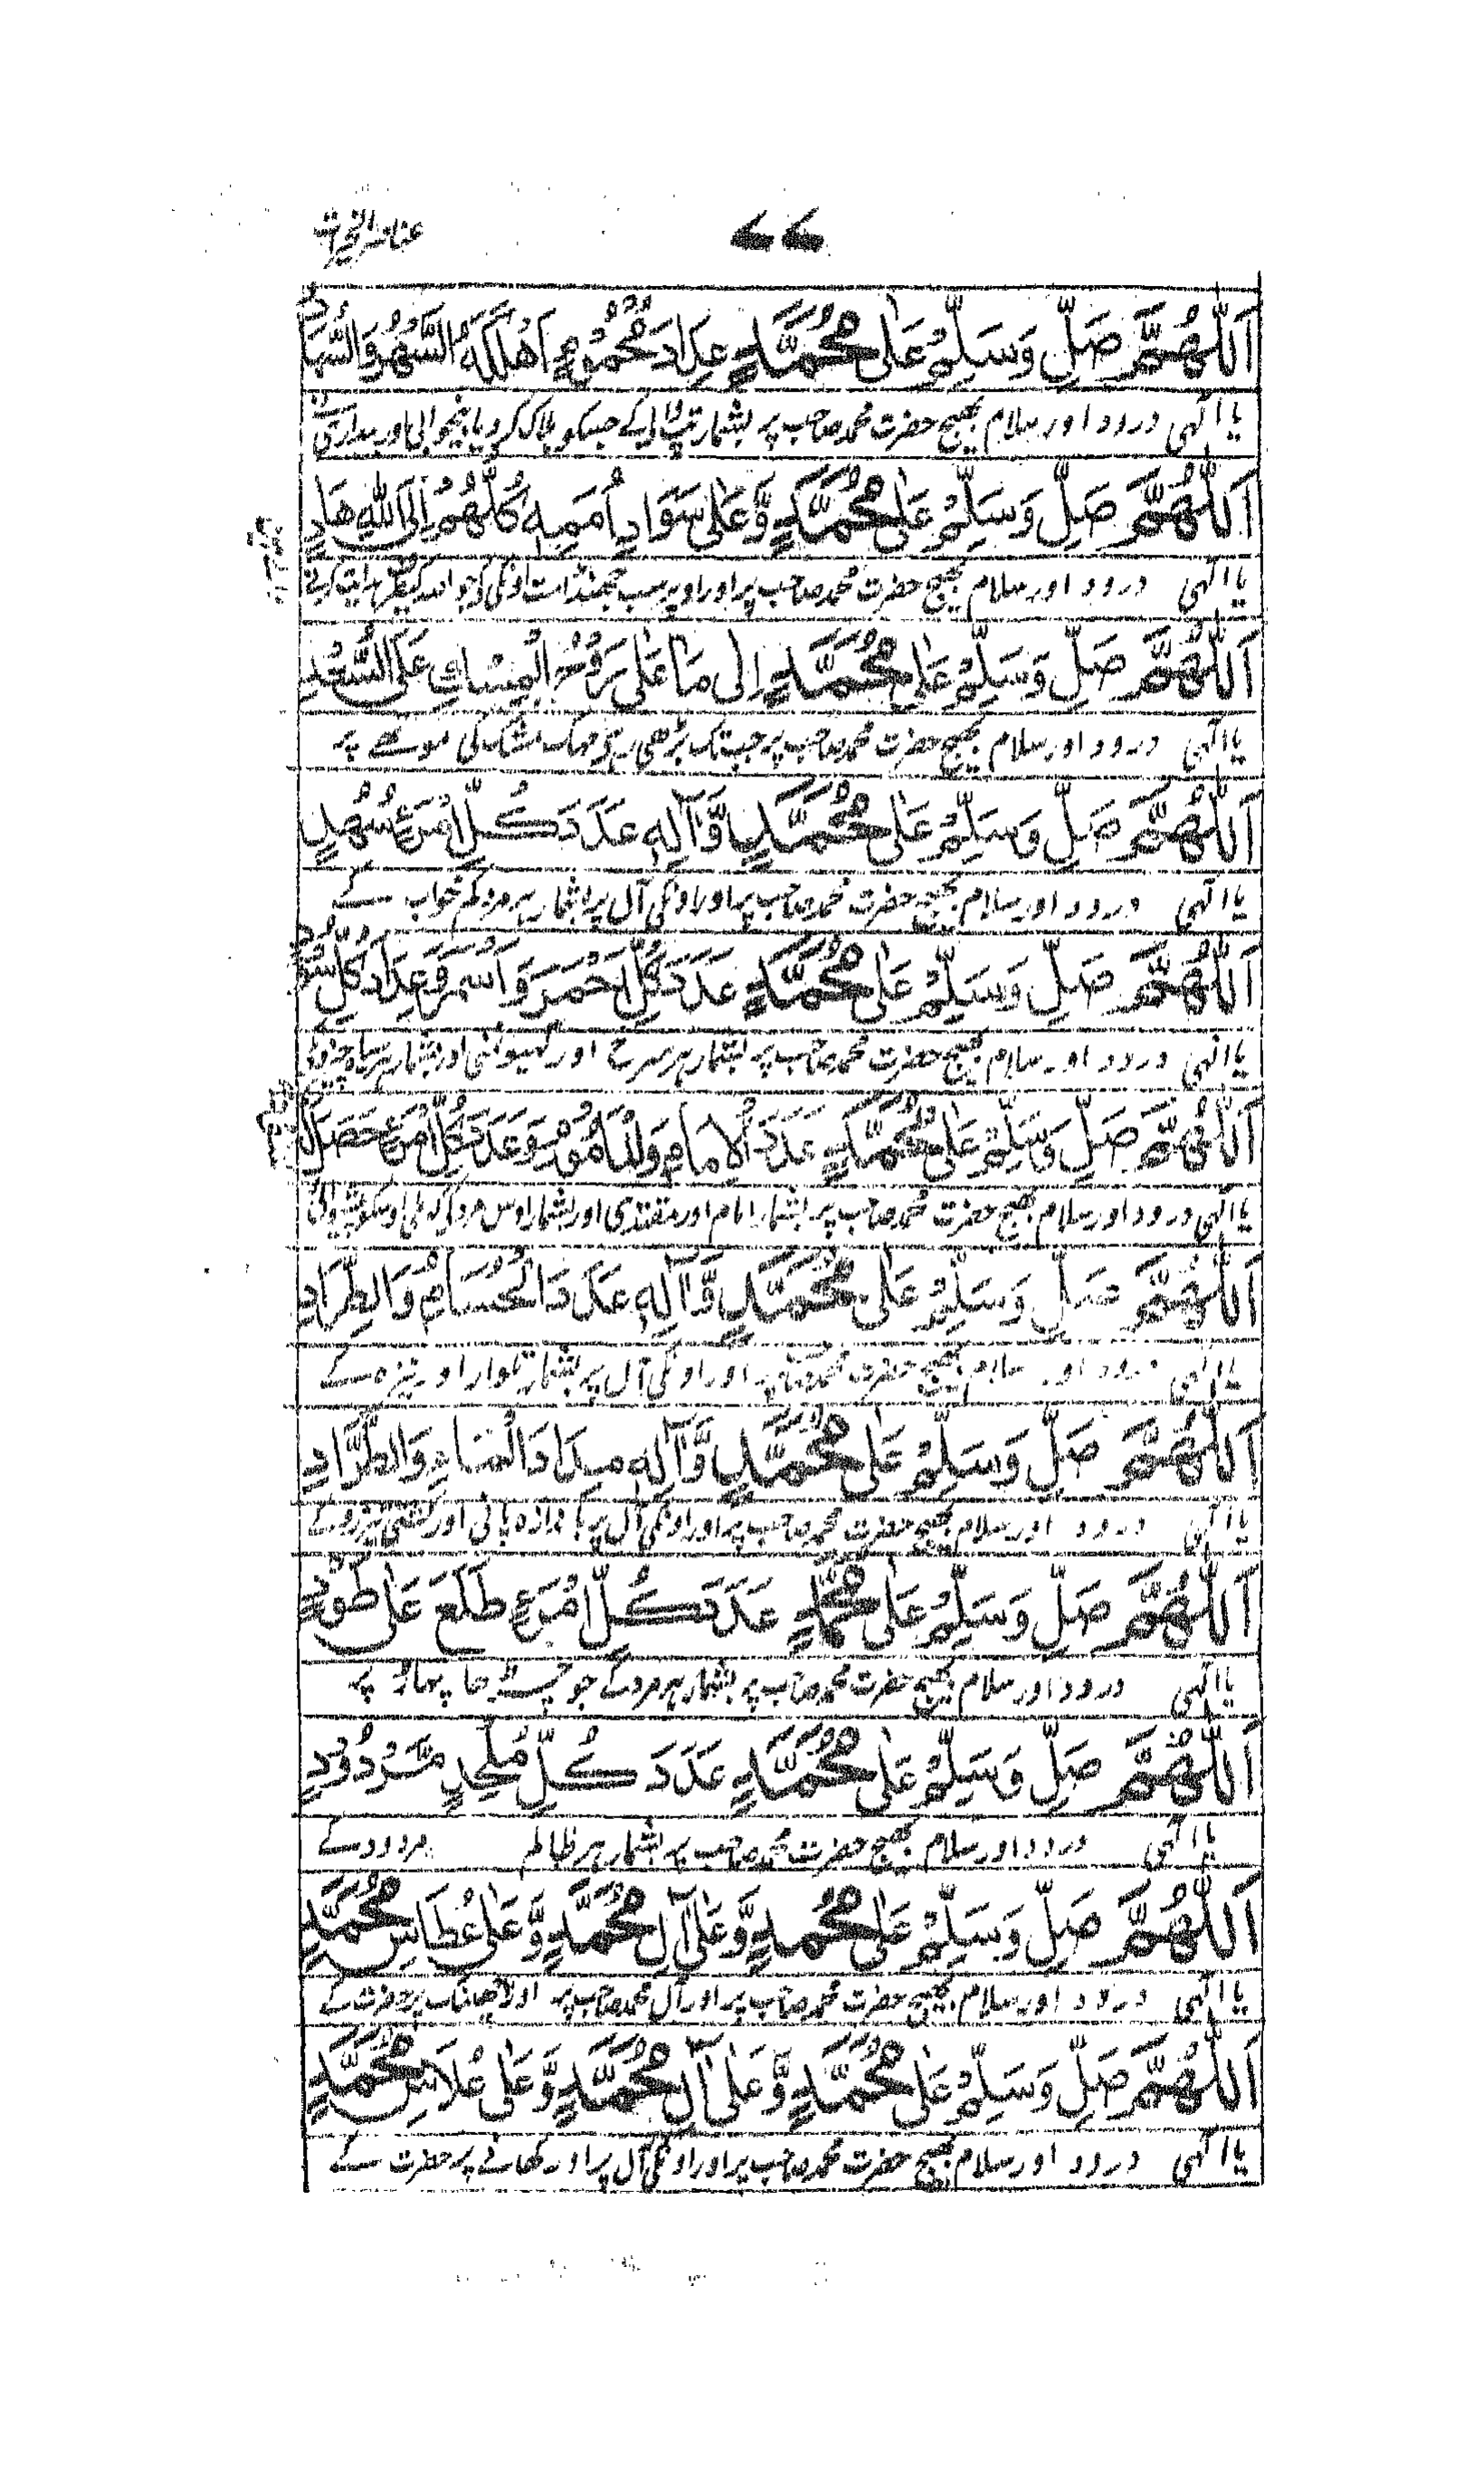 ۷۷
اَللّٰهُمَّ صَلِّ وَسَلِّمْ عَلٰى مُحَمَّدٍ عِدَادَ مَحْمُوْمٍ اَهْلَكَهُ السَّهَرُ وَالسُّهَادُ
یا الٰہی درود اور سلام بھیج حضرت محمد صاحب پر بشمار تپ والے کے جسکو ہلاک کردیا بیخوابی اور بیداری
اَللّٰهُمَّ صَلِّ وَسَلِّمْ عَلٰى مُحَمَّدٍ وَّعَلٰى سَوَادِ اُمَمِهٖ كُلُّهُمْ اِلَى اللهِ هَادٍ
یا الٰہی درود اور سلام بھیج حضرت محمد صاحب پر اور اوپر سب جھنڈ امت اونکی کے جو اللہ کیطرف ہدایت کرتے
اَللّٰهُمَّ صَلِّ وَسَلِّمْ عَلٰى مُحَمَّدٍ اِلٰى مَا عَلٰى رَوْحُ الْمِسْكِ عَلَى السُّعْدِ
یا الٰہی درود اور سلام بھیج حضرت محمد صاحب پر جب تک بڑھی رہے مہک مشک کی موتھے پر
اَللّٰهُمَّ صَلِّ وَسَلِّمْ عَلٰى مُحَمَّدٍ وَّاٰلِهٖ عَدَدَ كُلِّ امْرَءٍ سُهُدٍ
یا الٰہی درود اور سلام بھیج حضرت محمد صاحب پر اور اونکی آل پر بشمار ہر مرد کم خواب کے
اَللّٰهُمَّ صَلِّ وَسَلِّمْ عَلٰى مُحَمَّدٍ عَدَدَ كُلِّ اَحْمَرَ وَاَسْمَرَ وَعِدَادَ كُلِّ
یا الٰہی درود اور سلام بھیج حضرت محمد صاحب پر بشمار ہر سرخ اور گیہوئنی اور بشمار ہر سیاہ
اَللّٰهُمَّ صَلِّ وَسَلِّمْ عَلٰى مُحَمَّدٍ عَدَدَ الْاِمَامِ وَالْمَامُوْمِ وَعَدَدَ كُلِّ امْرَءٍ حَصَرَ
یا الٰہی درود اور سلام بھیج حضرت محمد صاحب پر بشمار امام اور مقتدی اور بشمار اوس مرد کے کہ ملی اوسکو
اَللّٰهُمَّ صَلِّ وَسَلِّمْ عَلٰى مُحَمَّدٍ وَّاٰلِهٖ عَدَدَ الْحُسَامِ وَالطِّرَادِ
یا الٰہی درود اور سلام بھیج حضرت محمد صاحب پر اور اونکی آل پر بشمار تلوار اور نیزہ کے
اَللّٰهُمَّ صَلِّ وَسَلِّمْ عَلٰى مُحَمَّدٍ وَّاٰلِهٖ مِدَادَ الْمَاءِ وَالطَّرَّادِ
یا الٰہی درود اور سلام بھیج حضرت محمد صاحب پر اور اونکی آل پر باندازہ پانی اور کشتی تیزرو کے
اَللّٰهُمَّ صَلِّ وَسَلِّمْ عَلٰى مُحَمَّدٍ عَدَدَ كُلِّ امْرَءٍ طَلَعَ عَلٰى طَوْدٍ
یا الٰہی درود اور سلام بھیج حضرت محمد صاحب پر بشمار ہر مرد کے جو چڑھا پہاڑ پر
اَللّٰهُمَّ صَلِّ وَسَلِّمْ عَلٰى مُحَمَّدٍ عَدَدَ كُلِّ مُلْحِدٍ مَّرْدُوْدٍ
یا الٰہی درود اور سلام بھیج حضرت محمد صاحب پر بشمار ہر ظالم مردود کے
اَللّٰهُمَّ صَلِّ وَسَلِّمْ عَلٰى مُحَمَّدٍ وَّعَلٰى اٰلِ مُحَمَّدٍ وَّعَلٰى عُطَاسِ مُحَمَّدٍ
یا الٰہی درود اور سلام بھیج حضرت محمد صاحب پر اور آل محمد صاحب پر اور چھینک پر حضرت کے
اَللّٰهُمَّ صَلِّ وَسَلِّمْ عَلٰى مُحَمَّدٍ وَّعَلٰى اٰلِ مُحَمَّدٍ وَّعَلٰى عُلَاسِ مُحَمَّدٍ
یا الٰہی درود اور سلام بھیج حضرت محمد صاحب پر اور اونکی آل پر اور کھانے پر حضرت کے